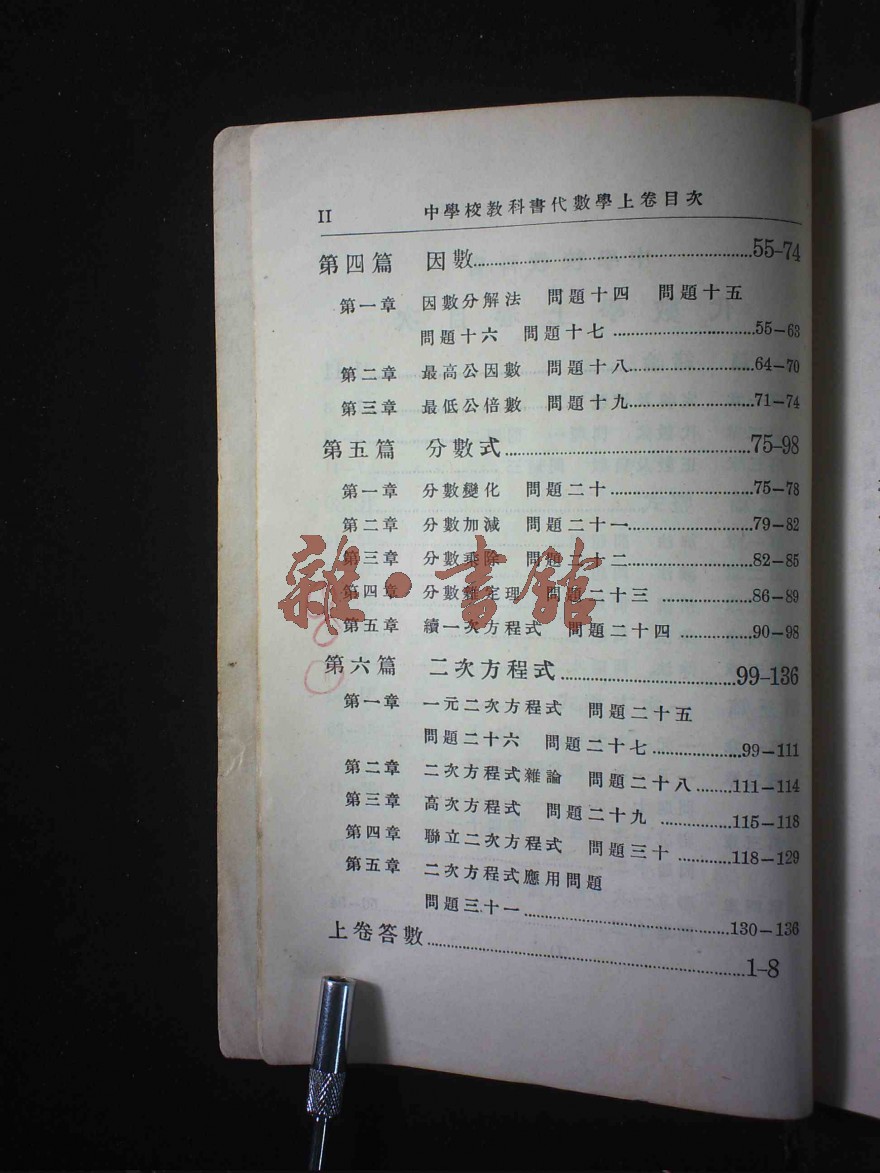 II 中學校教科書代數學上卷目次
第四篇 因數......55-74
第一章 因數分解法 問題十四 問題十五
問題十六 問題十七......55-63
第二章 最高公因數 問題十八......64-70
第三章 最低公倍數 問題十九......71-74
第五篇 分數式......75-98
第一章 分數變化 問題二十......75-78
第二章 分數加減 問題二十一......79-82
第三章 分數乘除 問題二十二......82-85
第四章 分數雜定理 問題二十三......86-89
第五章 續一次方程式 問題二十四......90-98
雜·書館
第六篇 二次方程式......99-136
第一章 一元二次方程式 問題二十五
問題二十六 問題二十七......99-111
第二章 二次方程式雜論 問題二十八......111-114
第三章 高次方程式 問題二十九......115-118
第四章 聯立二次方程式 問題三十......118-129
第五章 二次方程式應用問題
問題三十一......130-136
上卷答數......1-8